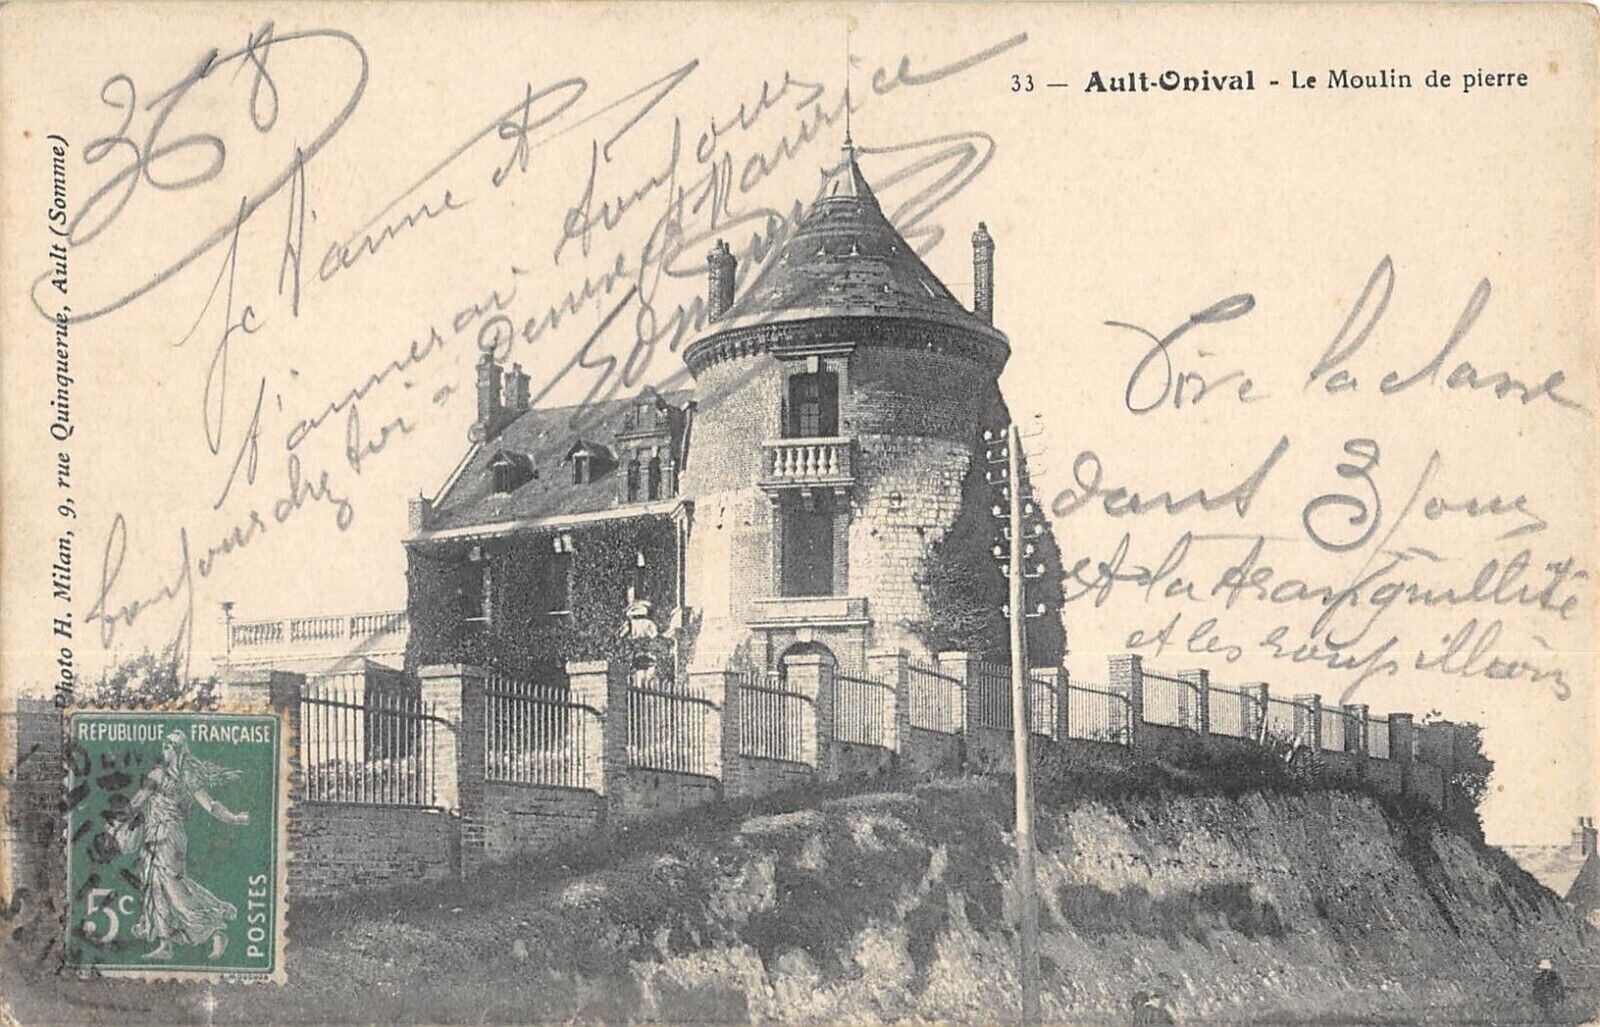 33 — Ault-Onival - Le Moulin de pierre
Photo H. Milan, 9, rue Quinquerue, Ault (Somme)
368
Je t'aime et
t'aimerai toujours
bonjour chez toi à Denise et Maurice
Vive la classe
dans 3 jours
et la tranquillité
et les
RÉPUBLIQUE FRANÇAISE
5c
POSTES